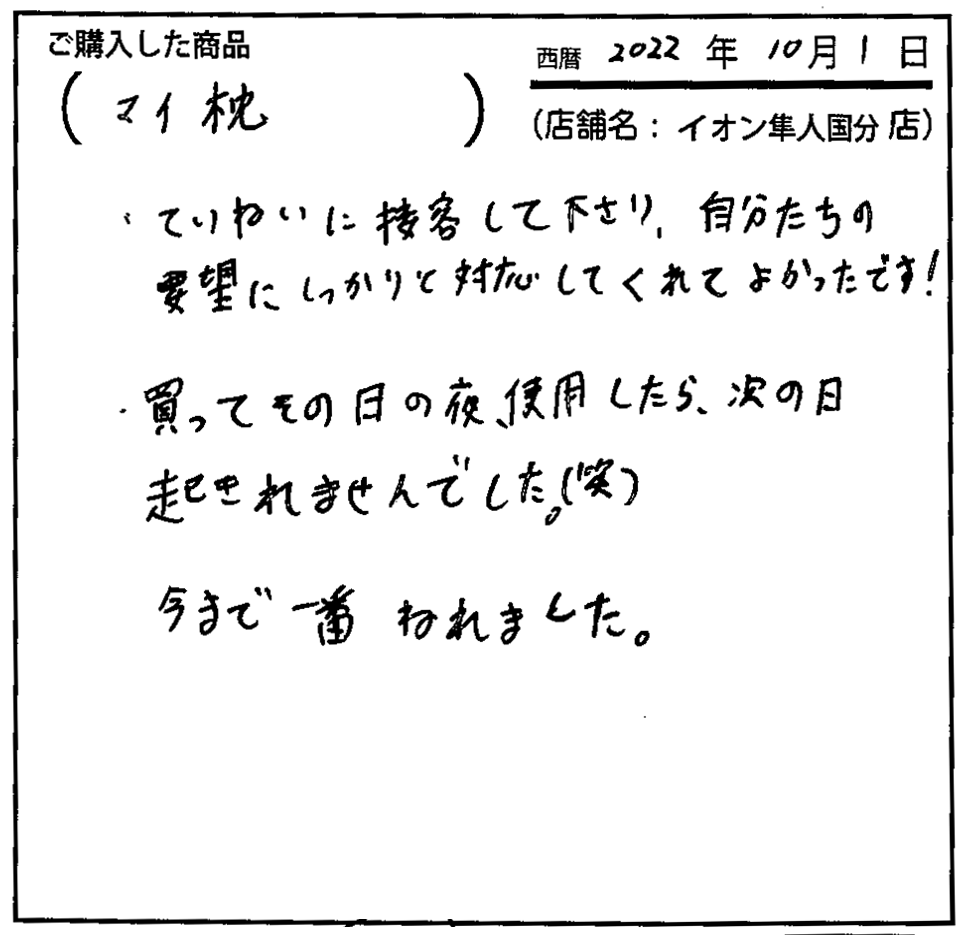 ご購入した商品
西暦 2022 年 10月 1 日
(マイ枕)
(店舗名: イオン隼人国分店)
・ていねいに接客して下さり、自分たちの
要望にしっかりと対応してくれてよかったです!
・買ってその日の夜、使用したら、次の日
起きれませんでした。(笑)
今まで一番ねれました。